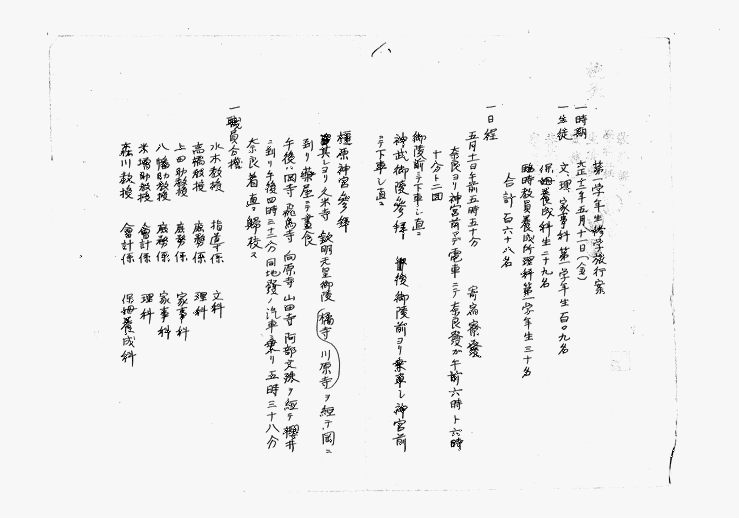 第一学年生修学旅行案
一時期
大正十二年五月十一日(金)
一生徒
文、理、家事科 第一学年生 百〇九名
保姆養成科生 二十九名
臨時教員養成所理科第一学年生 三十名
合計 百六十八名
一日程
五月十一日午前五時五十分 寄宿寮發
奈良ヨリ神宮前マデ電車ニテ奈良發ガ午前六時ト六時
十分ト二回
御陵前ニテ下車シ直ニ
神武御陵參拜 後御陵前ヨリ乗車シ神宮前
ニテ下車シ直ニ
橿原神宮參拜
其レヨリ久米寺 欽明天皇御陵 橘寺 川原寺ヲ經テ岡ニ
到リ 屋ニテ晝食
午後ハ岡寺 飛鳥寺 向原寺 山田寺 阿部文殊ヲ經テ櫻井
ニ到リ午後四時三十二分同地發ノ汽車ニ乗リ五時三十八分
奈良着直ニ歸校ス
一職員分擔
水木教授 指導係 文科
高橋教授 庶務係 理科
上田助教授 庶務係 家事科
八幡助教授 庶務係 家事科
米塲助教授 會計係 理科
森川教授 會計係 保姆養成科